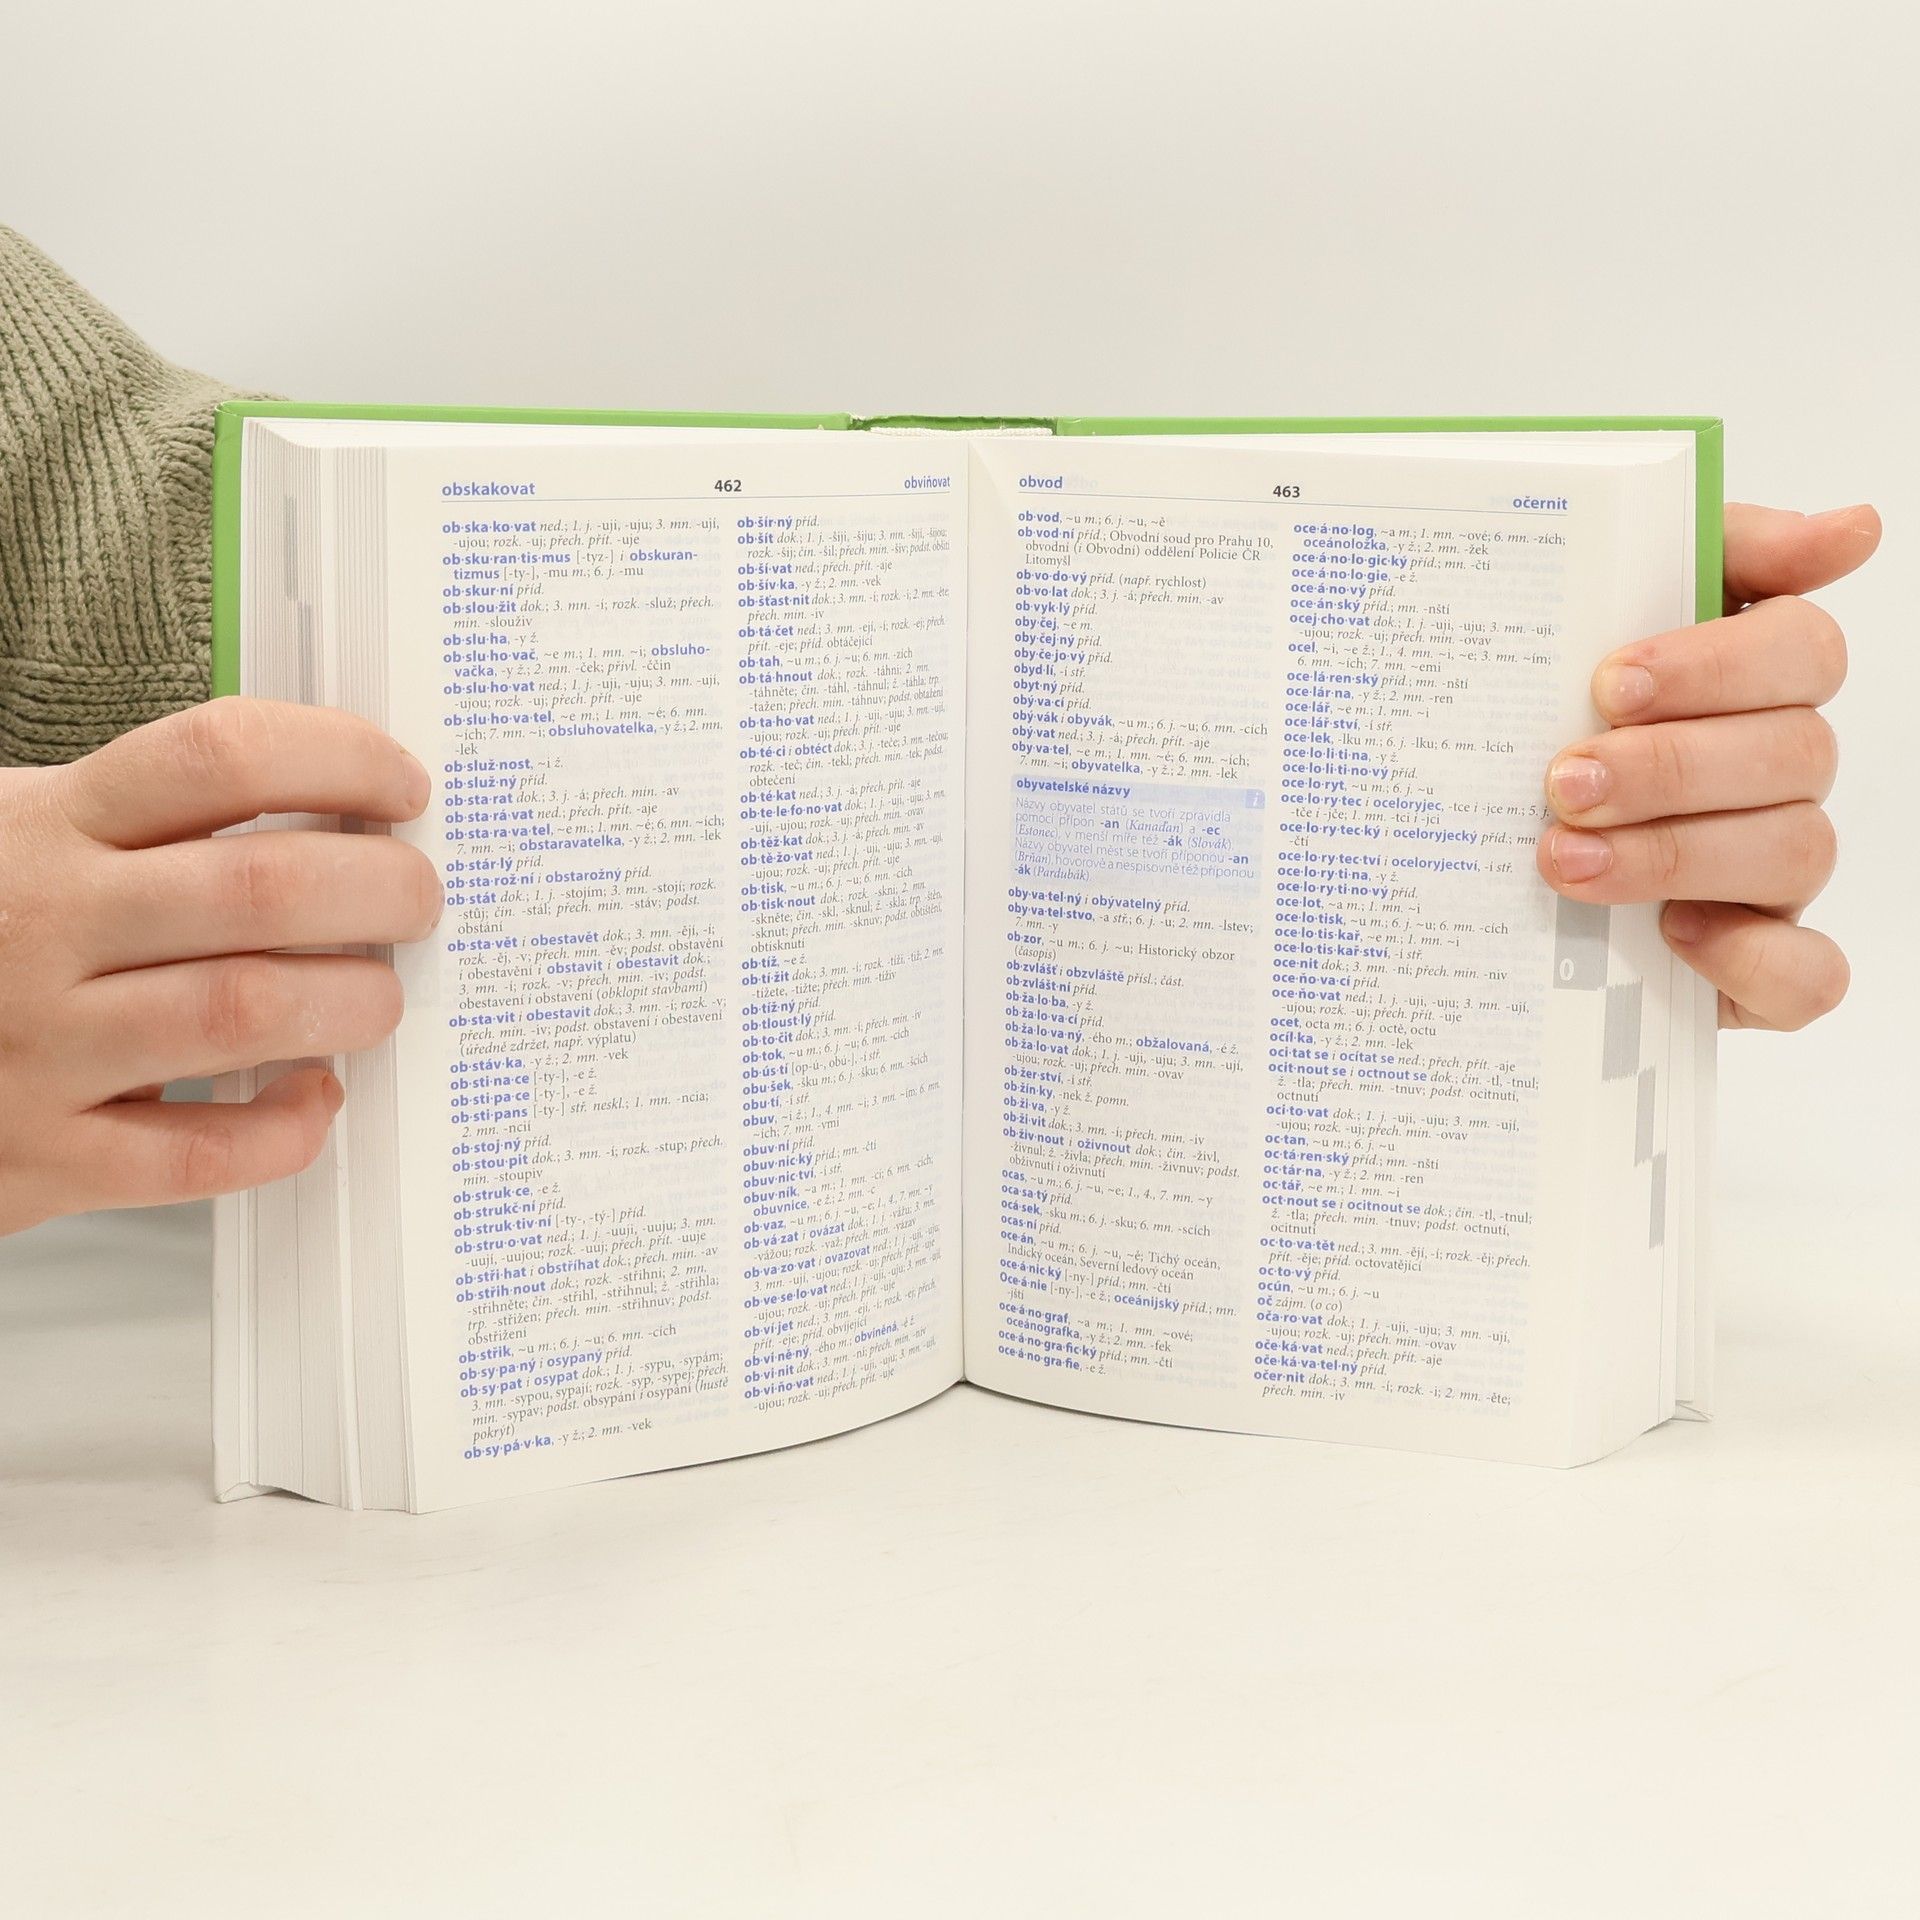 obskakovat 462 obviňovat
ob·ska·ko·vat ned.; 1. j. -uji, -uju; 3. mn. -ují,
-ujou; rozk. -uj; přech. přít. -uje
ob·sku·ran·tis·mus [-tyz-] i obskuran-
tizmus [-ty-], -mu m.; 6. j. -mu
ob·skur·ní příd.
ob·slou·žit dok.; 3. mn. -í; rozk. -služ; přech.
min. -slouživ
ob·slu·ha, -y ž.
ob·slu·ho·vač, ~e m.; 1. mn. ~i; obsluho-
vačka, -y ž.; 2. mn. -ček; přivl. -ččin
ob·slu·ho·vat ned.; 1. j. -uji, -uju; 3. mn. -ují,
-ujou; rozk. -uj; přech. přít. -uje
ob·slu·ho·va·tel, ~e m.; 1. mn. ~é; 6. mn.
~ích; 7. mn. ~i; obsluhovatelka, -y ž.; 2. mn.
-lek
ob·služ·nost, ~i ž.
ob·služ·ný příd.
ob·sta·rat dok.; 3. j. -á; přech. min. -av
ob·sta·rá·vat ned.; přech. přít. -aje
ob·sta·ra·va·tel, ~e m.; 1. mn. ~é; 6. mn. ~ích;
7. mn. ~i; obstaravatelka, -y ž.; 2. mn. -lek
ob·stár·lý příd.
ob·sta·rož·ní i obstarožný příd.
ob·stát dok.; 1. j. -stojím; 3. mn. -stojí; rozk.
-stůj; čin. -stál; přech. min. -stáv; podst.
obstání
ob·sta·vět i obestavět dok.; 3. mn. -ějí, -í;
rozk. -ěj, -v; přech. min. -ěv; podst. obstavění
i obestavění i obstavit i obestavit dok.;
3. mn. -í; rozk. -v; přech. min. -iv; podst.
obestavení i obstavení (obklopit stavbami)
ob·sta·vit i obestavit dok.; 3. mn. -í; rozk. -v;
přech. min. -iv; podst. obstavení i obestavení
(úředně zdržet, např. výplatu)
ob·stáv·ka, -y ž.; 2. mn. -vek
ob·sti·na·ce [-ty-], -e ž.
ob·sti·pa·ce [-ty-], -e ž.
ob·sti·pans [-ty-] stř. neskl.; 1. mn. -ncia;
2. mn. -ncií
ob·stoj·ný příd.
ob·stou·pit dok.; 3. mn. -í; rozk. -stup; přech.
min. -stoupiv
ob·struk·ce, -e ž.
ob·strukč·ní příd.
ob·struk·tiv·ní [-ty-, -tý-] příd.
ob·stru·o·vat ned.; 1. j. -uuji, -uuju; 3. mn.
-uují, -uujou; rozk. -uuj; přech. přít. -uuje
ob·stři·hat i obstříhat dok.; přech. min. -av
ob·střih·nout dok.; rozk. -střihni; 2. mn.
-střihněte; čin. -střihl, -střihnul; ž. -střihla;
trp. -střižen; přech. min. -střihnuv; podst.
obstřižení
ob·střik, ~u m.; 6. j. ~u; 6. mn. -cích
ob·sy·pa·ný i osypaný příd.
ob·sy·pat i osypat dok.; 1. j. -sypu, -sypám;
3. mn. -sypou, sypají; rozk. -syp, -sypej; přech.
min. -sypav; podst. obsypání i osypání (hustě
pokrýt)
ob·sy·pá·v·ka, -y ž.; 2. mn. -vek
ob·šír·ný příd.
ob·šít dok.; 1. j. -šiji, -šiju; 3. mn. -šijí, -šijou;
rozk. -šij; čin. -šil; přech. min. -šiv; podst. obšití
ob·ší·vat ned.; přech. přít. -aje
ob·šív·ka, -y ž.; 2. mn. -vek
ob·šťast·nit dok.; 3. mn. -í; rozk. -i; 2. mn. -ěte;
přech. min. -iv
ob·tá·čet ned.; 3. mn. -ejí, -í; rozk. -ej; přech.
přít. -eje; příd. obtáčející
ob·tah, ~u m.; 6. j. ~u; 6. mn. -zích
ob·táh·nout dok.; rozk. -táhni; 2. mn.
-táhněte; čin. -táhl, -táhnul; ž. -táhla; trp.
-tažen; přech. min. -táhnuv; podst. obtažení
ob·ta·ho·vat ned.; 1. j. -uji, -uju; 3. mn. -ují,
-ujou; rozk. -uj; přech. přít. -uje
ob·té·ci i obtéct dok.; 3. j. -teče; 3. mn. -tečou;
rozk. -teč; čin. -tekl; přech. min. -tek; podst.
obtečení
ob·té·kat ned.; 3. j. -á; přech. přít. -aje
ob·te·le·fo·no·vat dok.; 1. j. -uji, -uju; 3. mn.
-ují, -ujou; rozk. -uj; přech. min. -ovav
ob·těž·kat dok.; 3. j. -á; přech. min. -av
ob·tě·žo·vat ned.; 1. j. -uji, -uju; 3. mn. -ují,
-ujou; rozk. -uj; přech. přít. -uje
ob·tisk, ~u m.; 6. j. ~u; 6. mn. -cích
ob·tisk·nout dok.; rozk. -skni; 2. mn.
-skněte; čin. -skl, -sknul; ž. -skla; trp. -štěn,
-sknut; přech. min. -sknuv; podst. obtištění,
obtisknutí
ob·tíž, ~e ž.
ob·tí·žit dok.; 3. mn. -í; rozk. -tiži, -tiž; 2. mn.
-tižete, -tižte; přech. min. -tíživ
ob·tíž·ný příd.
ob·tloust·lý příd.
ob·to·čit dok.; 3. mn. -í; přech. min. -iv
ob·tok, ~u m.; 6. j. ~u; 6. mn. -cích
ob·ús·tí [op-ú-, obú-], -í stř.
obu·šek, -šku m.; 6. j. -šku; 6. mn. -šcích
obu·tí, -í stř.
obuv, ~i ž.; 1., 4. mn. ~i; 3. mn. ~ím; 6. mn.
~ích; 7. mn. -vmi
obuv·ní příd.
obuv·nic·ký příd.; mn. -čtí
obuv·nic·tví, -í stř.
obuv·ník, ~a m.; 1. mn. -ci; 6. mn. -cích;
obuvnice, -e ž.; 2. mn. -c
ob·vaz, ~u m.; 6. j. ~u, ~e; 1., 4., 7. mn. ~y
ob·vá·zat i ovázat dok.; 1. j. -vážu; 3. mn.
-vážou; rozk. -važ; přech. min. -vázav
ob·va·zo·vat i ovazovat ned.; 1. j. -uji, -uju;
3. mn. -ují, -ujou; rozk. -uj; přech. přít. -uje
ob·ve·se·lo·vat ned.; 1. j. -uji, -uju; 3. mn. -ují,
-ujou; rozk. -uj; přech. přít. -uje
ob·ví·jet ned.; 3. mn. -ejí, -í; rozk. -ej; přech.
přít. -eje; příd. obvíjející
ob·vi·ně·ný, -ého m.; obviněná, -é ž.
ob·vi·nit dok.; 3. mn. -ní; přech. min. -niv
ob·vi·ňo·vat ned.; 1. j. -uji, -uju; 3. mn. -ují,
-ujou; rozk. -uj; přech. přít. -uje
obvod 463 očernit
ob·vod, ~u m.; 6. j. ~u, ~ě
ob·vod·ní příd.; Obvodní soud pro Prahu 10,
obvodní (i Obvodní) oddělení Policie ČR
Litomyšl
ob·vo·do·vý příd. (např. rychlost)
ob·vo·lat dok.; 3. j. -á; přech. min. -av
ob·vyk·lý příd.
oby·čej, ~e m.
oby·čej·ný příd.
oby·če·jo·vý příd.
obyd·lí, -í stř.
obyt·ný příd.
obý·va·cí příd.
obý·vák i obyvák, ~u m.; 6. j. ~u; 6. mn. -cích
obý·vat ned.; 3. j. -á; přech. přít. -aje
oby·va·tel, ~e m.; 1. mn. ~é; 6. mn. ~ích;
7. mn. ~i; obyvatelka, -y ž.; 2. mn. -lek
obyvatelské názvy i
Názvy obyvatel států se tvoří zpravidla
pomocí přípon -an (Kanaďan) a -ec
(Estonec), v menší míře též -ák (Slovák).
Názvy obyvatel měst se tvoří příponou -an
(Brňan), hovorově a nespisovně též příponou
-ák (Pardubák).
oby·va·tel·ný i obývatelný příd.
oby·va·tel·stvo, -a stř.; 6. j. -u; 2. mn. -lstev;
7. mn. -y
ob·zor, ~u m.; 6. j. ~u; Historický obzor
(časopis)
ob·zvlášť i obzvláště přísl.; část.
ob·zvlášt·ní příd.
ob·ža·lo·ba, -y ž.
ob·ža·lo·va·cí příd.
ob·ža·lo·va·ný, -ého m.; obžalovaná, -é ž.
ob·ža·lo·vat dok.; 1. j. -uji, -uju; 3. mn. -ují,
-ujou; rozk. -uj; přech. min. -ovav
ob·žer·ství, -í stř.
ob·žin·ky, -nek ž. pomn.
ob·ži·va, -y ž.
ob·ži·vit dok.; 3. mn. -í; přech. min. -iv
ob·živ·nout i oživnout dok.; čin. -živl,
-živnul; ž. -živla; přech. min. -živnuv; podst.
obživnutí i oživnutí
ocas, ~u m.; 6. j. ~u, ~e; 1., 4., 7. mn. ~y
oca·sa·tý příd.
ocá·sek, -sku m.; 6. j. -sku; 6. mn. -scích
ocas·ní příd.
oce·án, ~u m.; 6. j. ~u, ~ě; Tichý oceán,
Indický oceán, Severní ledový oceán
oce·á·nic·ký [-ny-] příd.; mn. -čtí
Oce·á·nie [-ny-], -e ž.; oceánijský příd.; mn.
-jští
oce·á·no·graf, ~a m.; 1. mn. ~ové;
oceánografka, -y ž.; 2. mn. -fek
oce·á·no·gra·fic·ký příd.; mn. -čtí
oce·á·no·gra·fie, -e ž.
oce·á·no·log, ~a m.; 1. mn. ~ové; 6. mn. -zích;
oceánoložka, -y ž.; 2. mn. -žek
oce·á·no·lo·gic·ký příd.; mn. -čtí
oce·á·no·lo·gie, -e ž.
oce·á·no·vý příd.
oce·án·ský příd.; mn. -nští
ocej·cho·vat dok.; 1. j. -uji, -uju; 3. mn. -ují,
-ujou; rozk. -uj; přech. min. -ovav
ocel, ~i, ~e ž.; 1., 4. mn. ~i, ~e; 3. mn. ~ím;
6. mn. ~ích; 7. mn. ~emi
oce·lá·ren·ský příd.; mn. -nští
oce·lár·na, -y ž.; 2. mn. -ren
oce·lář, ~e m.; 1. mn. ~i
oce·lář·ství, -í stř.
oce·lek, -lku m.; 6. j. -lku; 6. mn. -lcích
oce·lo·li·ti·na, -y ž.
oce·lo·li·ti·no·vý příd.
oce·lo·ryt, ~u m.; 6. j. ~u
oce·lo·ry·tec i oceloryjec, -tce i -jce m.; 5. j.
-tče i -jče; 1. mn. -tci i -jci
oce·lo·ry·tec·ký i oceloryjecký příd.; mn.
-čtí
oce·lo·ry·tec·tví i oceloryjectví, -í stř.
oce·lo·ry·ti·na, -y ž.
oce·lo·ry·ti·no·vý příd.
oce·lot, ~a m.; 1. mn. ~i
oce·lo·tisk, ~u m.; 6. j. ~u; 6. mn. -cích
oce·lo·tis·kař, ~e m.; 1. mn. ~i
oce·lo·tis·kař·ství, -í stř.
oce·nit dok.; 3. mn. -ní; přech. min. -niv
oce·ňo·va·cí příd.
oce·ňo·vat ned.; 1. j. -uji, -uju; 3. mn. -ují,
-ujou; rozk. -uj; přech. přít. -uje
ocet, octa m.; 6. j. octě, octu
ocíl·ka, -y ž.; 2. mn. -lek
oci·tat se i ocítat se ned.; přech. přít. -aje
ocit·nout se i octnout se dok.; čin. -tl, -tnul;
ž. -tla; přech. min. -tnuv; podst. ocitnutí,
octnutí
oci·to·vat dok.; 1. j. -uji, -uju; 3. mn. -ují,
-ujou; rozk. -uj; přech. min. -ovav
oc·tan, ~u m.; 6. j. ~u
oc·tá·ren·ský příd.; mn. -nští
oc·tár·na, -y ž.; 2. mn. -ren
oc·tář, ~e m.; 1. mn. ~i
oct·nout se i ocitnout se dok.; čin. -tl, -tnul;
ž. -tla; přech. min. -tnuv; podst. octnutí,
ocitnutí
oc·to·va·tět ned.; 3. mn. -ějí, -í; rozk. -ěj; přech.
přít. -ěje; příd. octovatějící
oc·to·vý příd.
ocún, ~u m.; 6. j. ~u
oč zájm. (o co)
oča·ro·vat dok.; 1. j. -uji, -uju; 3. mn. -ují,
-ujou; rozk. -uj; přech. min. -ovav
oče·ká·vat ned.; přech. přít. -aje
oče·ká·va·tel·ný příd.
očer·nit dok.; 3. mn. -í; rozk. -i; 2. mn. -ěte;
přech. min. -iv
O